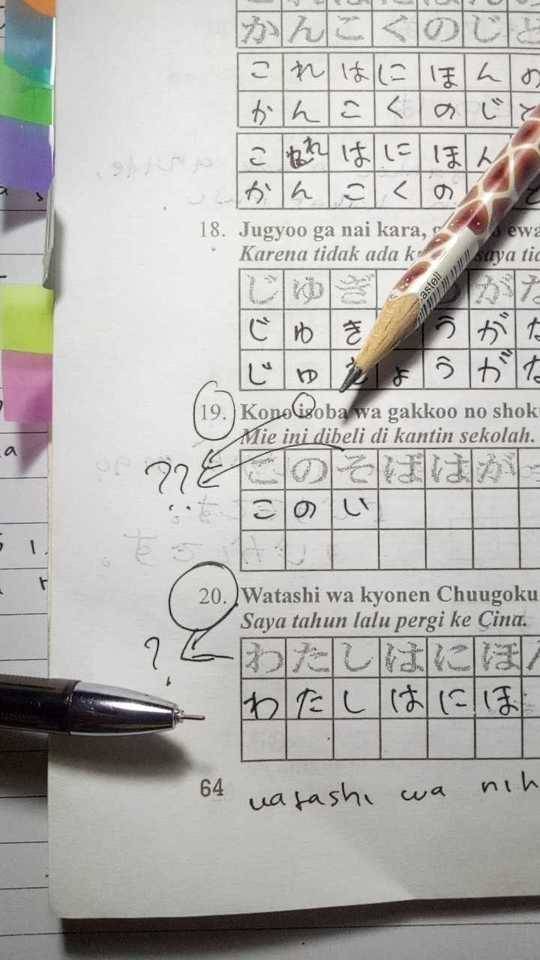 かんこくのじ
これはにほんの
かんこくのじと
これはにほん
かんこくの
18. Jugyoo ga nai kara,
Karena tidak ada saya
じゅぎ がな
じゅき うがな
じゅ ょうがな
19. Kono isoba wa gakkoo no
Mie ini dibeli di kantin sekolah.
?? このそばはが
このい
20. Watashi wa kyonen Chuugoku
Saya tahun lalu pergi ke Cina.
? わたしはにほ
わたしはにほ
64
watashi wa